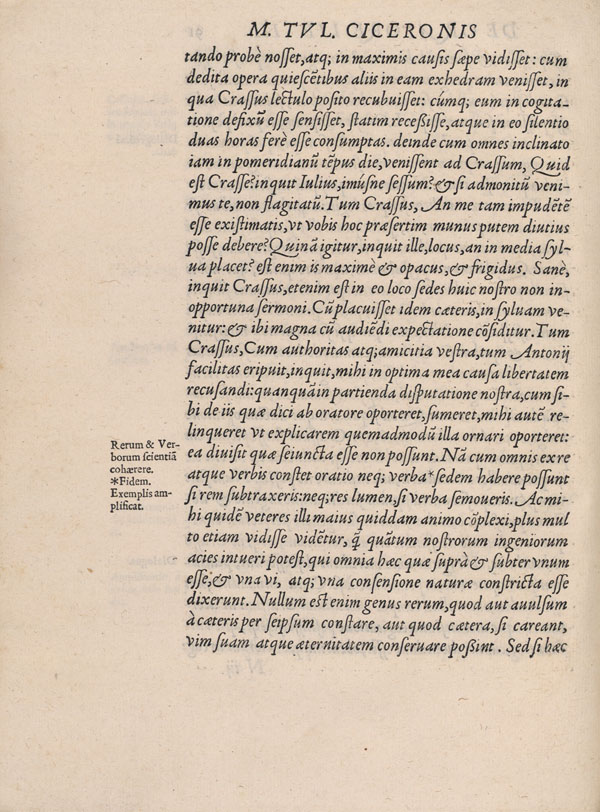 M. TVL. CICERONIS
tando probè nosset, atq; in maximis causis sæpe vidisset: cum
dedita opera quiescẽtibus aliis in eam exhedram venisset, in
qua Crassus lectulo posito recubuisset: cúmq; eum in cogita-
tione defixũ esse sensisset, statim recessisset, atque in eo silentio
duas horas ferè esse consumptas. deinde cum omnes inclinato
iam in pomeridianũ tẽpus die, venissent ad Crassum, Quid
est Crasse? inquit Iulius, imúsne sessum? & si admonitũ veni-
mus te, non flagitatũ. Tum Crassus, An me tam impudẽtẽ
esse existimatis, vt vobis hoc præsertim munus putem diutius
posse debere? Quinã igitur, inquit ille, locus, an in media syl-
ua placet? est enim is maximè & opacus, & frigidus. Sanè,
inquit Crassus, etenim est in eo loco sedes huic nostro non in-
opportuna sermoni. Cũ placuisset idem cæteris, in syluam ve-
nitur: & ibi magna cũ audiẽdi expectatione cõsiditur. Tum
Crassus, Cum authoritas atq; amicitia vestra, tum Antonij
facilitas eripuit, inquit, mihi in optima mea causa libertatem
recusandi: quanquã in partienda disputatione nostra, cum si-
bi de iis quæ dici ab oratore oporteret, sumeret, mihi autẽ re-
linqueret vt explicarem quemadmodũ illa ornari oporteret:
ea diuisit quæ seiuncta esse non possunt. Nã cum omnis ex re
Rerum & Ver-
borum scientiã
cohærere.
*Fidem.
Exemplis am-
plificat.
atque verbis constet oratio neq; verba *sedem habere possunt
si rem subtraxeris: neq; res lumen, si verba semoueris. Ac mi-
hi quidẽ veteres illi maius quiddam animo cõplexi, plus mul
to etiam vidisse vidẽtur, q̃ quãtum nostrorum ingeniorum
acies intueri potest, qui omnia hæc quæ suprà & subter vnum
esse, & vna vi, atq; vna consensione naturæ constricta esse
dixerunt. Nullum est enim genus rerum, quod aut auulsum
à cæteris per seipsum constare, aut quod cætera, si careant,
vim suam atque æternitatem conseruare possint. Sed si hæc